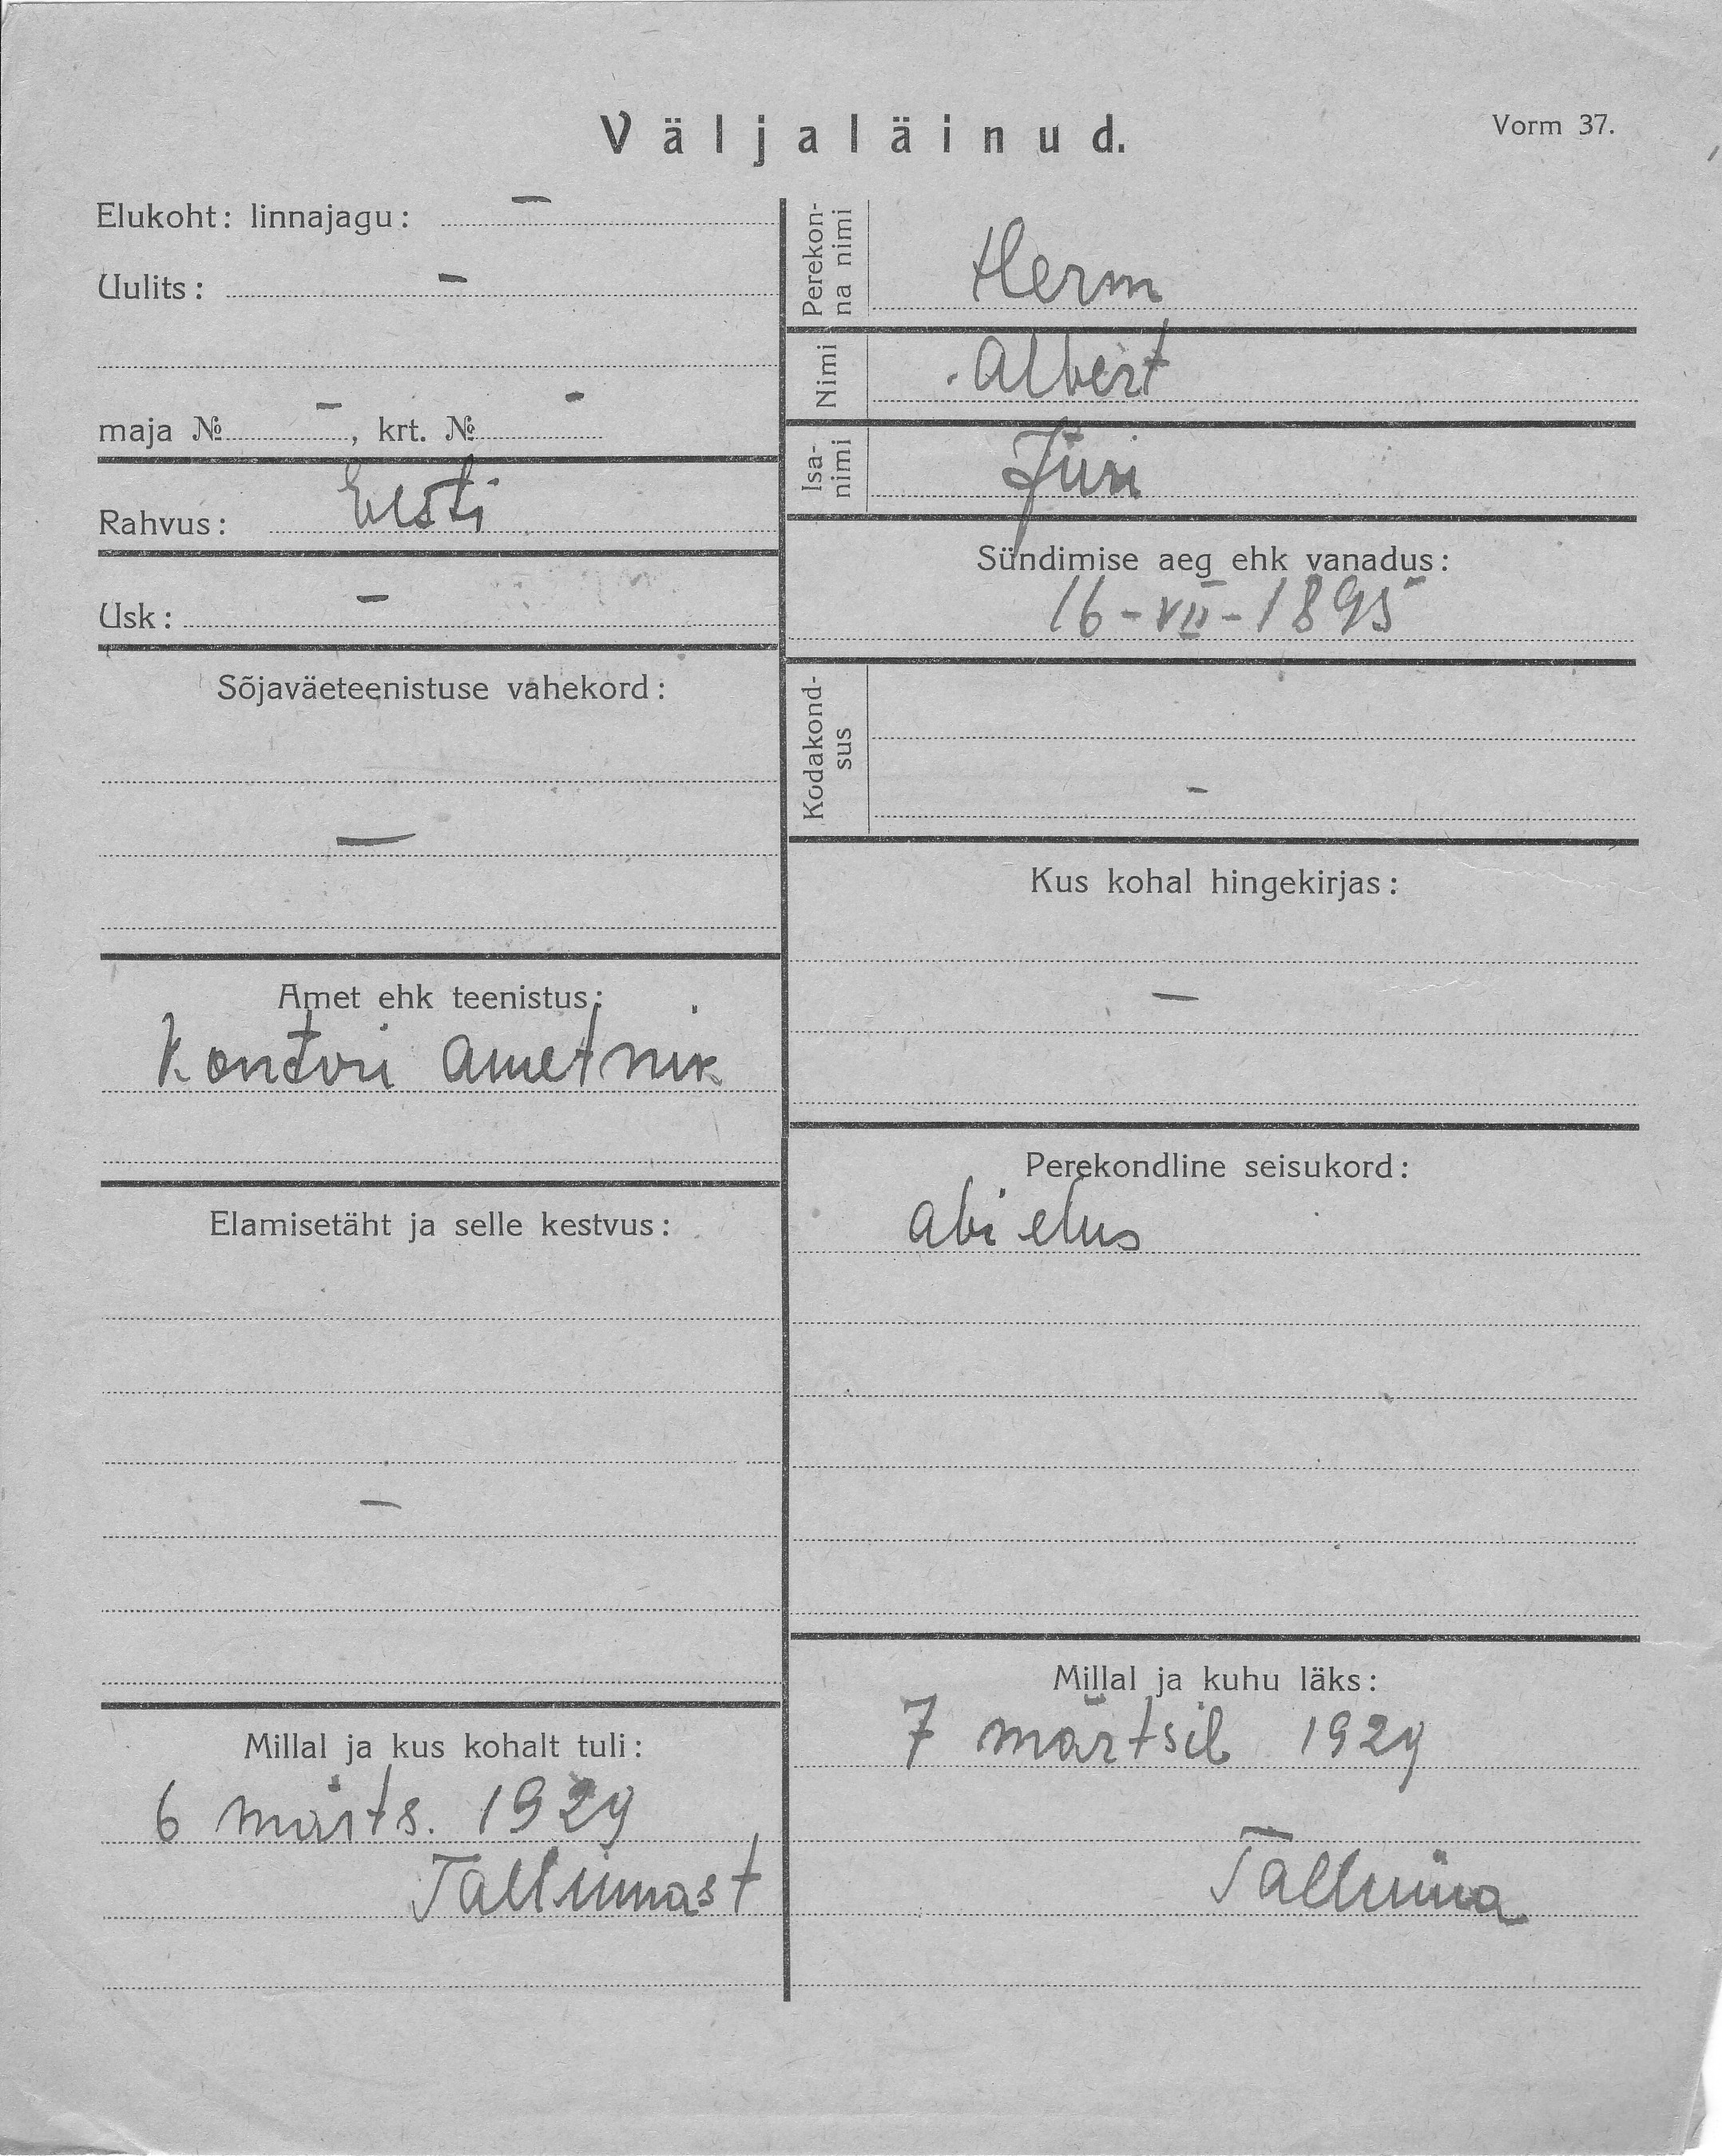 Väljaläinud.
Vorm 37.
Elukoht: linnajagu: —
Uulits: —
maja № —, krt. № -
Rahvus: Eesti
Usk: —
Sõjaväeteenistuse vahekord:
—
Amet ehk teenistus:
Kontori ametnik
Elamisetäht ja selle kestvus:
—
Millal ja kus kohalt tuli:
6 märts. 1929
Tallinnast
Perekonna nimi Herm
Nimi Albert
Isanimi Jüri
Sündimise aeg ehk vanadus:
16-VII-1895
Kodakondsus
-
Kus kohal hingekirjas:
—
Perekondline seisukord:
abielus
Millal ja kuhu läks:
7 märtsil 1929
Tallinna